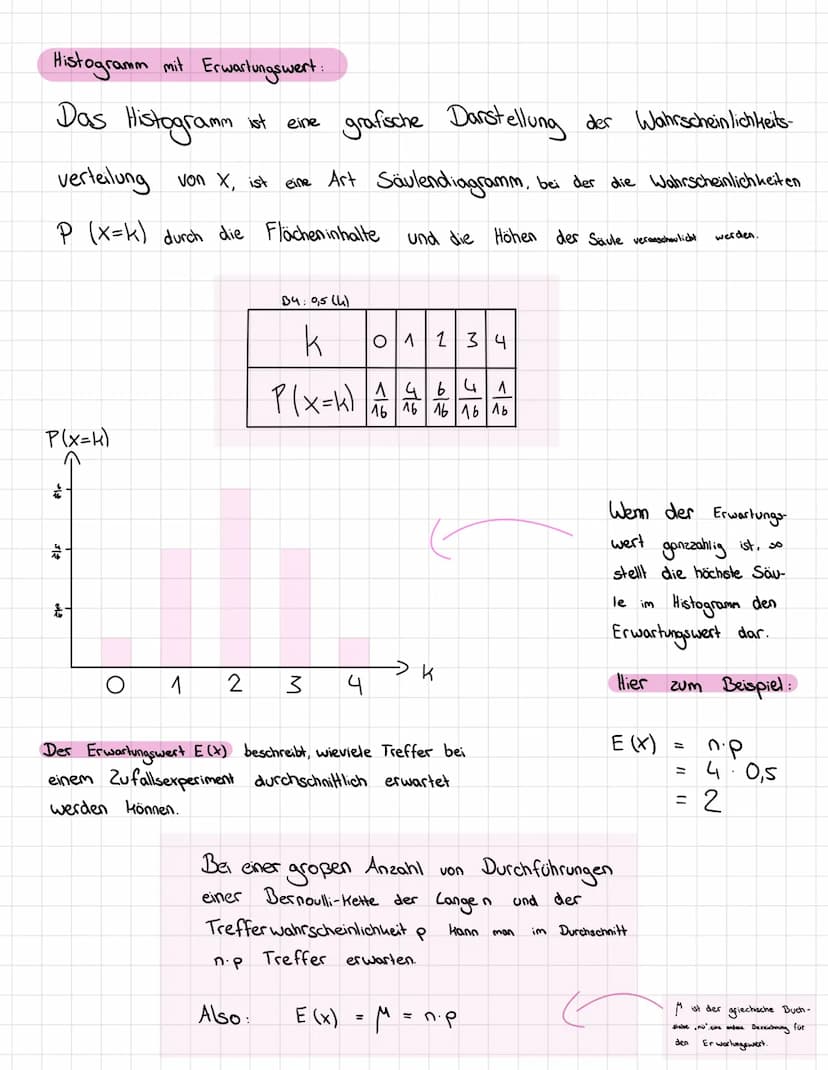 Histogramm mit Erwartungswert:
Das Histogramm ist eine grafische Darstellung der Wahrscheinlichkeits-
verteilung von X, ist eine Art Säulendiagramm, bei der die Wahrscheinlichkeiten
P (X=k) durch die Flächeninhalte und die Höhen der Säule veranschaulicht werden.
B4: 0,5 (k)
k 0 1 2 3 4
P(X=k) 1/16 4/16 6/16 4/16 1/16
P(X=k)
6/16
4/16
2/16
0 1 2 3 4 k
Wenn der Erwartungs-
wert ganzzahlig ist, so
stellt die höchste Säu-
le im Histogramm den
Erwartungswert dar.
Hier zum Beispiel:
E(X) = n·p
= 4 · 0,5
= 2
Der Erwartungswert E(X) beschreibt, wieviele Treffer bei
einem Zufallsexperiment durchschnittlich erwartet
werden können.
Bei einer großen Anzahl von Durchführungen
einer Bernoulli-Kette der Länge n und der
Trefferwahrscheinlichkeit p kann man im Durchschnitt
n·p Treffer erwarten.
Also: E(X) = μ = n·p
μ ist der griechische Buch-
stabe „mü", eine andere Bezeichnung für
den Erwartungswert.